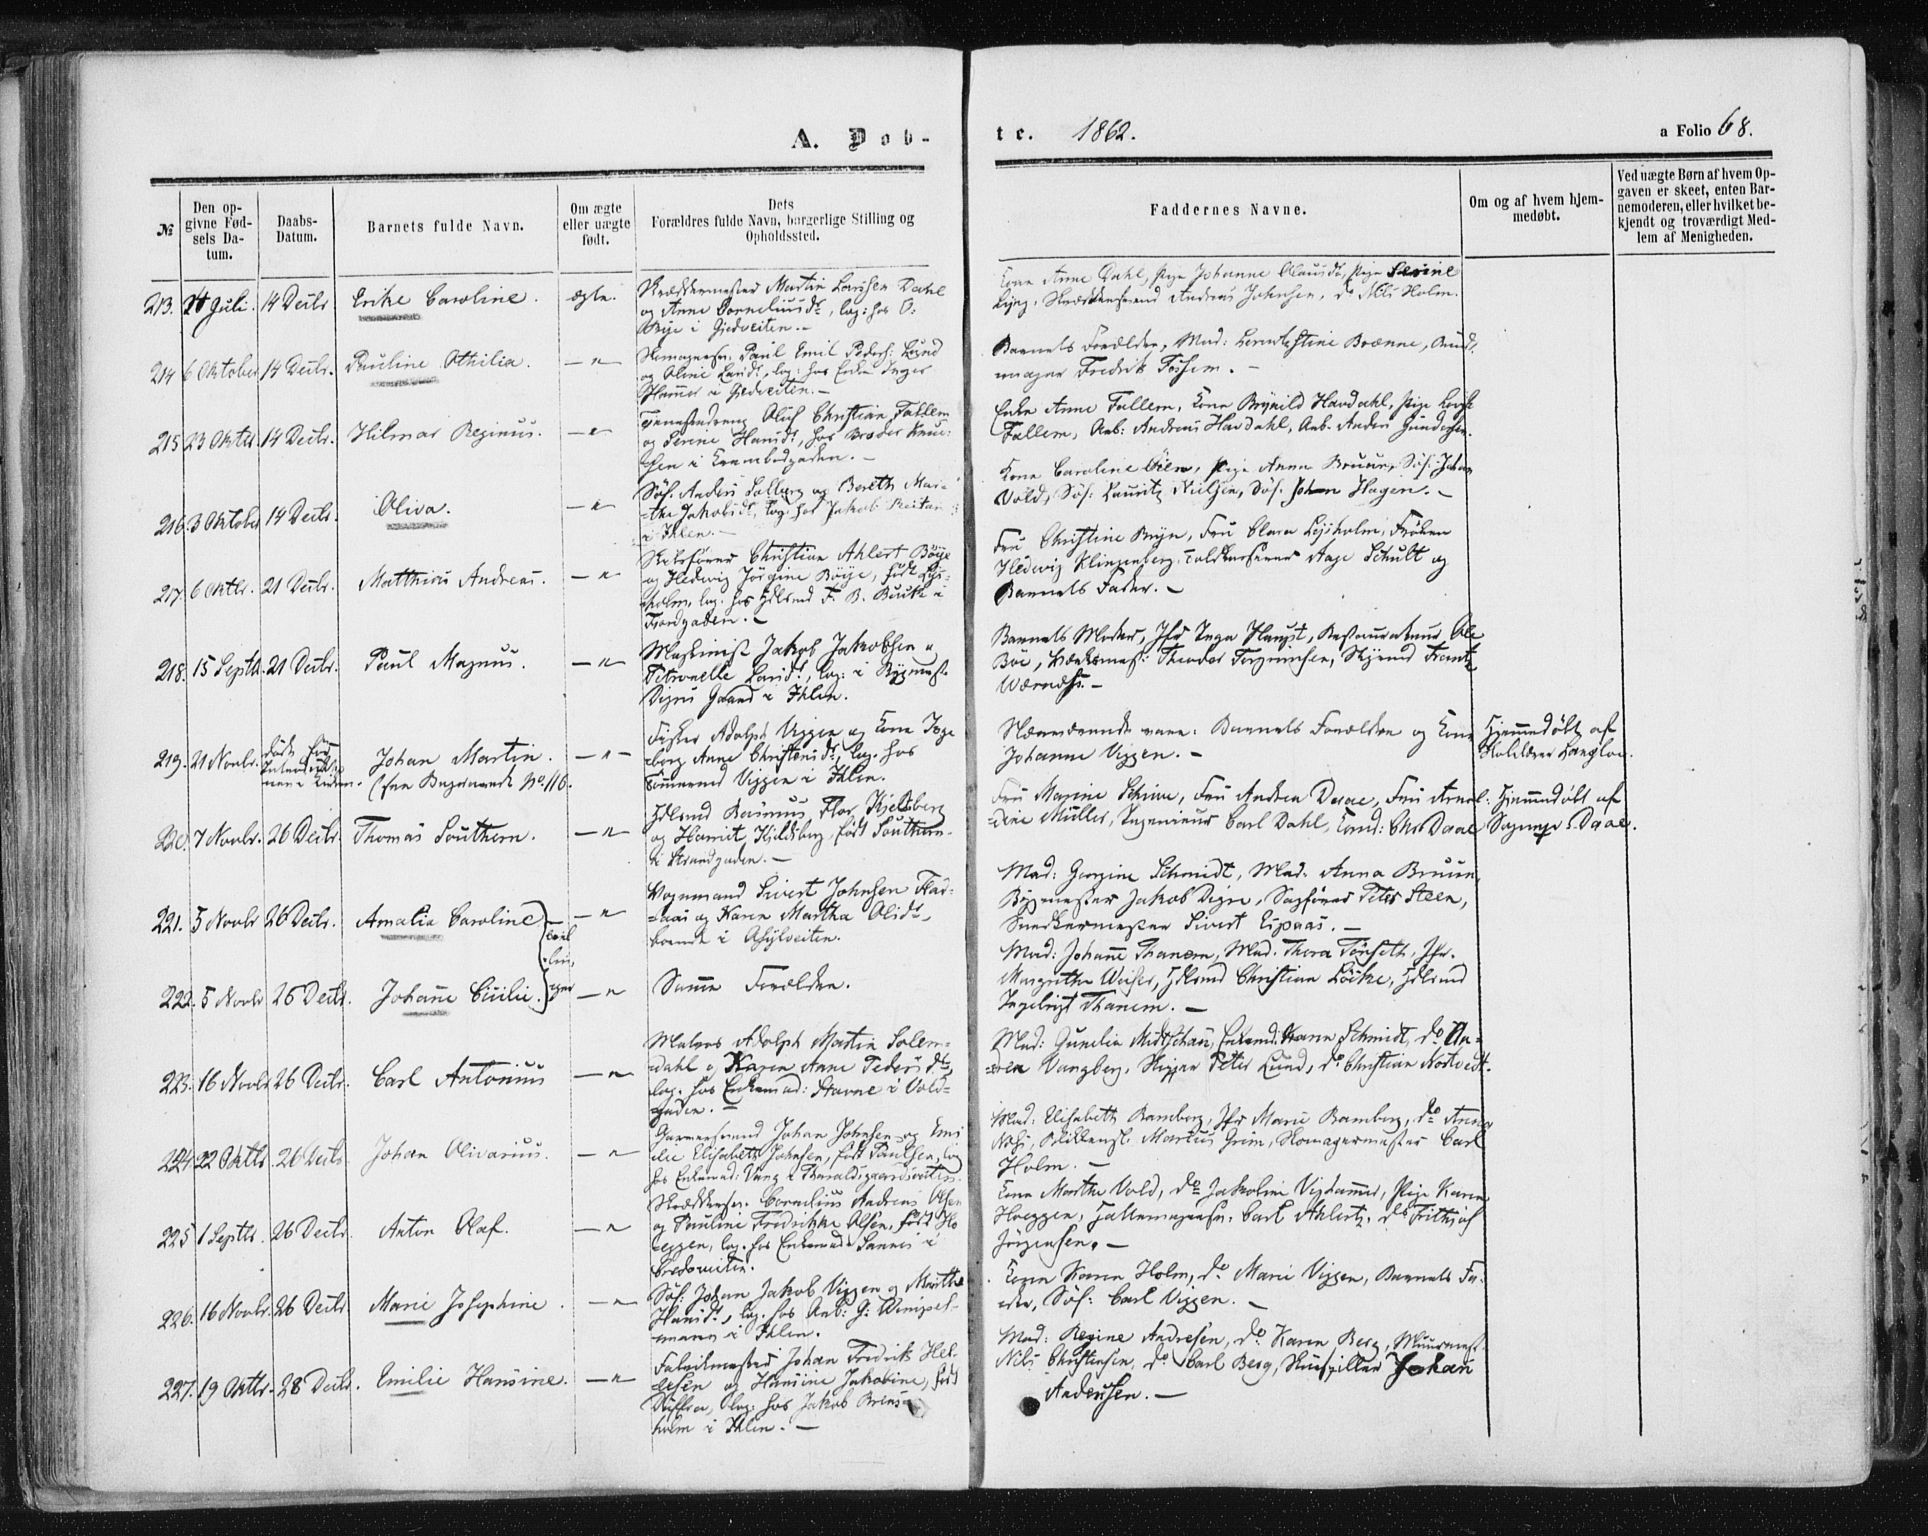 A. Døb-
te. 1862. a Folio 68.
№ | Den opgivne Fødsels Datum. | Daabs-Datum. | Barnets fulde Navn. | Om ægte eller uægte født. | Dets Forældres fulde Navn, borgerlige Stilling og Opholdssted. | Faddernes Navne. | Om og af hvem hjemmedøbt. | Ved uægte Børn af hvem Opgaven er skeet, enten Barnemoderen, eller hvilket bekjendt og troværdigt Medlem af Menigheden.
213. Juli. 14 Decbr Erike Caroline. ægte.
Skræddermester Martin Larssen Dahl
og Anne Corneliusdr, log: hos O:
i Gjedveiten.
Kone Anne Dahl, Pige Johanne Clausdr, Pige Serine
Andreas Johnsen, do Nils Holm.
214 6 Oktober 14 Decbr. Pauline Othilia. —"—
Paul Emil Peders: Lund
og Oline Larsdr, log: hos Enke Inger
Hammer i Gjedveiten.—
Barnets Forældre, Mad: Brænne, Bund-
mager Fredrik Tossem.—
215 23 Oktbr. 14 Decbr. Hilmar Reginus. —"—
Tjenestedreng Oluf Christian Fallem
og Serine Hansdr, hos Broder
i Krambodgaden.—
Enke Anne Fallem, Kone Brynild Havdahl, Pige
Fallem, Arb: Andreas Havdahl, Arb. Anders Gundersen.
216. 3 Oktober 14 Decbr. Oliva. —"—
Søf. Anders Solberg og Bereth Mar-
the Jakobsdr, log. hos Jakob Reitan
i Ihlen.—
Kone Caroline Oien, Pige Anna Bruun, Søf: Johan
Vold, Søf: Lauritz Nielsen, Søf. Johan Hagen.—
217. 6 Oktbr. 21 Decbr. Matthias Andreas. —"—
Christian Ahlert Böije
og Hedevig Jörgine Böije, født Lys-
holm, log. hos Hdlsmd F. B. Buck i
Fjordgaden.—
Fru Christine Bryn, Fru Clara Lysholm, Frøken
Hedevig Klingenberg, Toldkasserer Aage Schult og
Barnets Fader.—
218. 15 Septbr. 21 Decbr. Paul Magnus. —"—
Maskinist Jakob Jakobsen og
Petronelle Larsdr, log: i Bygmest.
Digres Gaard i Ihlen.
Barnets Moder, Jfr Inga Haupt, Restaurateur Ole
Böe, Værksmest: Theodor Torgrimsen, Styrmd Frantz
Wærnæs.—
219. 21 Novbr. Johan Martin. —"—
Døde før
(see Begravede No. 116.
Fisker Adolph Viggen og Kone Inge-
borg Anne Christensdr, log. hos
Tømmermd Viggen i Ihlen.
Nærværende vare: Barnets Forældre og Kone
Johanne Viggen.—
Hjemmedøbt af
220. 7 Novbr. 26 Decbr. Thomas Southern. —"—
Hdlsmd Rasmus Flor Kjeldsberg
og Harriet Kjeldsberg, født Southern
i Strandgaden.—
Fru Marine Schive, Fru Andrea Daae, Fru Arnol-
dine Müller, Ingenieur Carl Dahl, Cand: Chr Daae
Hjemmedøbt af
Sognepr. Daae.
221. 5 Novbr 26 Decbr. Amalia Caroline —"—
Tvil-
lin-
ger
Vognmand Sivert Johnsen Flad-
aas og Karen Martha Olsdr,
boende i Asylveiten.
Mad: Georgine Schmidt, Mad. Anna Bruun,
Bygmester Jakob Digre, Sagfører Peter Steen,
Snedkermester Sivert Espaas.—
222. 5 Novbr 26 Decbr. Johanne Cecilie. —"—
Samme Forældre.
Mad: Johanne Thanem, Mad. Thora Tönseth, Jfr.
Margrethe Weiser, Hdlsmd Christian Löcke, Hdlsmd
Ingebrigt Thanem.—
223. 16 Novbr 26 Decbr. Carl Antonius —"—
Malers. Adolph Martin Solem-
dahl og Karen Anne Pedersdr,
log. hos Enkemad: Stavne i Vold-
gaden.—
Mad: Gunelia Midtschau, Enkemd: Karen Schmidt, do An-
drea Vangberg, Skipper Peter Lund, do Christian Nortvedt.
224 22 Oktbr 26 Decbr Johan Olivarius. —"—
Garversvend Johan Johnsen og Emi-
lie Elisabeth Johnsen, født Paulsen, log
hos Enkemad: Vang i Tharaldsgaardsveiten.
Mad: Elisabeth Bamberg, Jfr Marie Bamberg, do Anna
Martius Grim, Skomagermester Carl
Holm.—
225 1 Septbr. 26 Decbr. Anton Olaf. —"—
Skræddersv. Cornelius Andreas Olsen
og Pauline Fredrikke Olsen, født Ho-
eggen, log. hos Enkemad: Sannes i
Bredveiten.
Kone Marthe Vold, do Jakobine Vighammer, Pige Karen
Hoeggen, Carl Ahlertz, do Frithjof
Jörgensen.—
226. 16 Novbr. 26 Decbr Marie Josephine. —"—
Søf: Johan Jakob Viggen og Marthe
Hansdr, log. hos Arb: G: Wingel-
mann i Ihlen.
Kone Karen Holm, do Marie Viggen, Barnets Fa-
der, Søf: Carl Viggen.—
227. 19 Oktbr. 28 Decbr. Emilie Hansine. —"—
Fabrikmester Johan Fredrik Hel-
gesen og Hansine Jakobine, født
log: hos Jakob Brens-
holm i Ihlen.—
Mad: Regine Andresen, do Karen Berg, Muurmest.
Nils Christensen, do Carl Berg, Skuespiller Johan
Andersen.—